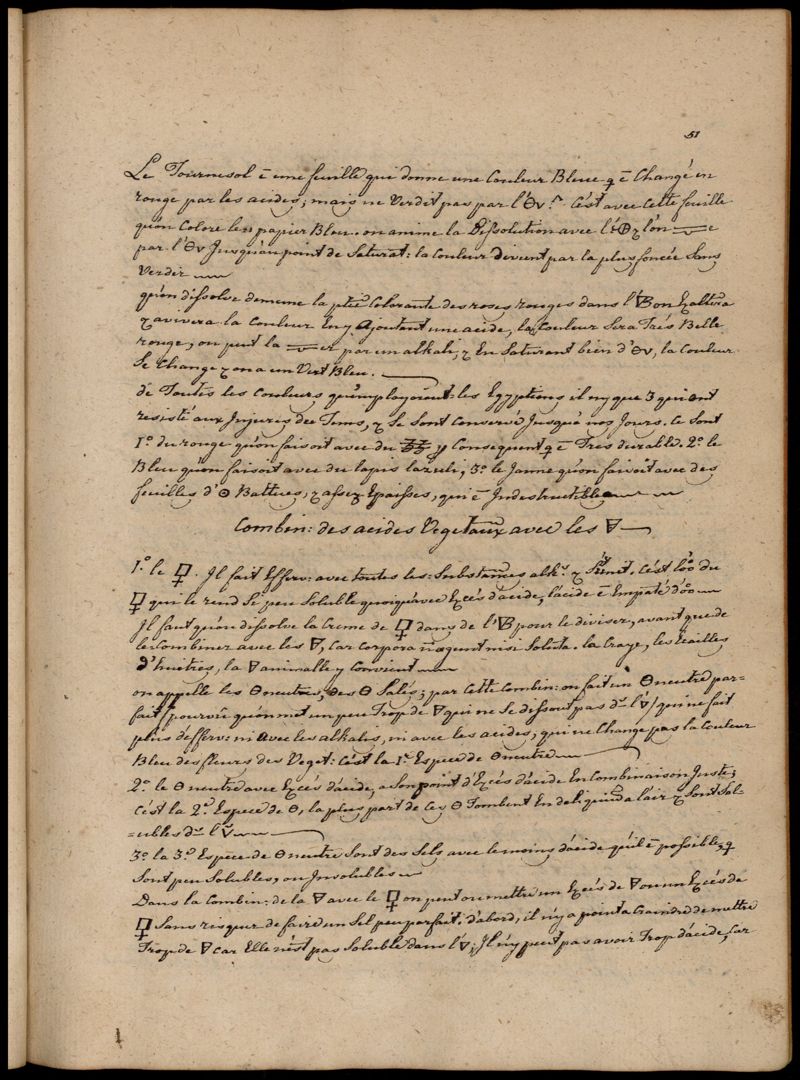 51
Le Tournesol ē une feuille qui donne une Couleur Bleue q ē Changé en
rouge par les acides, mais ne Verdit pas par l'🜔v. C'est avec Cette feuille
qu'on Colore le papier Bleu. on amme la Dissolution avec l'
par l'🜔v Jusqu'au point de Saturat: la Couleur devient par la plus foncée Sans
Verdir
qu'on dissolve de meme la ptie Colorante des roses rouges dans l'🜃 Bon
& avivera la Couleur En y Ajoutant une acide, la Couleur Sera Trés Belle
rouge, on peut la par un alkali, & En Saturant bien d'🜔v, la Couleur
Se Change & on a un Vert Bleu.
de Toutes les Couleurs qu'employoient les Egyptiens il n'y que 3 qui ont
resisté aux Injures des Tems, & Se Sont Conservé Jusqu'a nos Jours. Ce Sont
1.º du rouge qu'on faisoit avec du Consequent q ē Tres durable. 2.º le
Bleu qu'on faisoit avec du lapis lazuli, 3.º le Jaune qu'on faisoit avec des
feuilles d'🜔 Battues, & assez Epaisses, qui ē Indestructible
Combin: des acides Vegetaux avec les 🜃
1.º le 🜿. Il fait Efferv: avec toutes les Substances alk. & C'est du
🜿 qui le rend Si peu Soluble quoiqu'avec Excés d'acide, l'acide ē Empaté d'
Il faut qu'on dissolve la Creme de 🜿 dans de l'🜄B pour le diviser, avant que de
les Combiner avec les 🜃, Car Corpora ñ agunt nisi Soluta. la Craye, les Ecailles
d'huitres, la 🜃 animalle y Convient
on appelle les 🜔 neutres, des 🜔 Salés; par Cette Combin: on fait un 🜔 neutre par=
fait (pourvû qu'on met un peu Trop de 🜃 qui ne Se dissout pas d. l'🜄) qui ne fait
plus d'efferv: ni avec les alkalis, ni avec les acides, qui ne Change pas la Couleur
Bleu des fleurs des Veget: C'est la 1.e Espece de 🜔 neutre
2.º le 🜔 neutre avec Excés d'acide, a Son point d'Excés d'acide En Combinaison Juste;
C'est la 2.e Espece de 🜔, la plus part de Ces 🜔 Tombent En deliquio à l'air & Sont Sol=
=ubles d. l'🜄
3.º la 3.e Espece de 🜔 neutre Sont des Sels avec le moins d'acide qu'il ē possible, q
Sont peu Solubles, ou Insolubles
Dans la Combin: de la 🜃 avec le 🜿 on peut ou mettre un Excés de 🜃 ou un Excés de
🜿 Sans risquer de faire un Sel peu parfait. d'abord, il n'y a point a Craindre de mettre
Trop de 🜃 Car Elle n'est pas Soluble dans l'🜄; Il n'y peut pas avoir Trop d'acide, Car